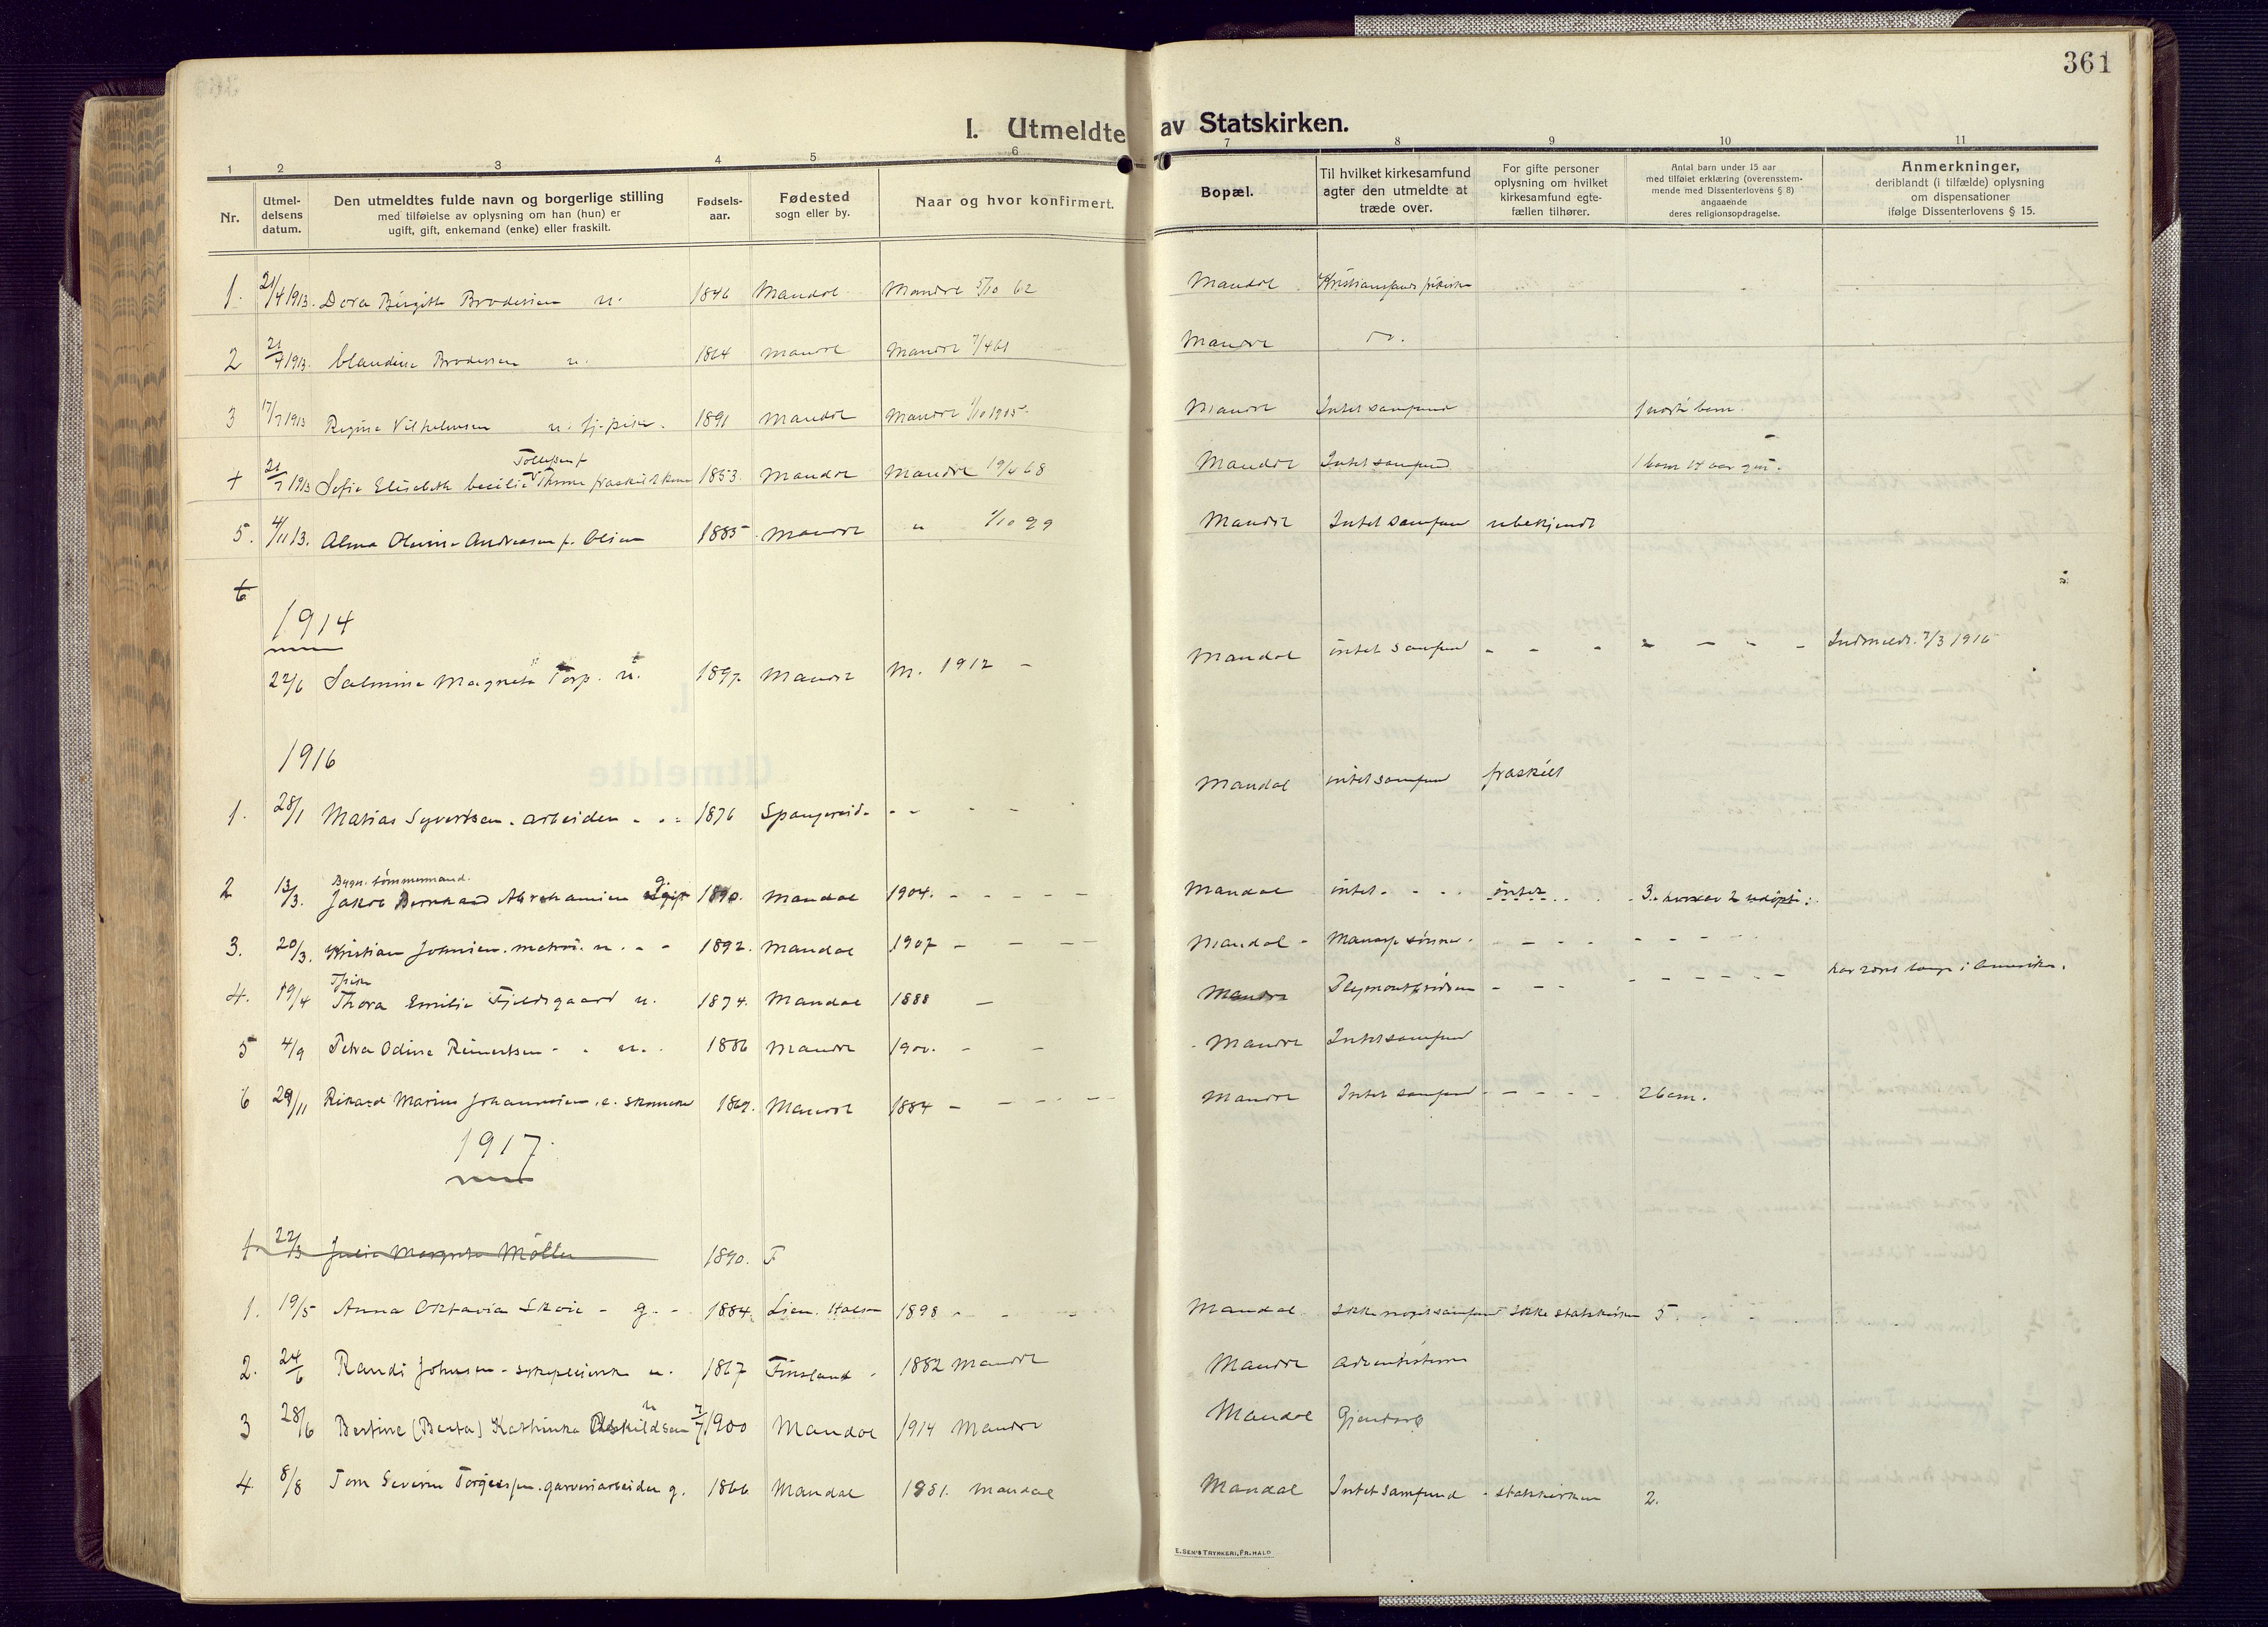 361
I. Utmeldte av Statskirken.
1 2 3 4 5 6 7 8 9 10 11
Nr.
Utmel-
delsens
datum.
Den utmeldtes fulde navn og borgerlige stilling
med tilføielse av oplysning om han (hun) er
ugift, gift, enkemand (enke) eller fraskilt.
Fødsels-
aar.
Fødested
sogn eller by.
Naar og hvor konfirmert.
Bopæl.
Til hvilket kirkesamfund
agter den utmeldte at
træde over.
For gifte personer
oplysning om hvilket
kirkesamfund egte-
fællen tilhører.
Antal barn under 15 aar
med tilføiet erklæring (overensstem-
mende med Dissenterlovens § 8)
angaaende
deres religionsopdragelse.
Anmerkninger,
deriblandt (i tilfælde) oplysning
om dispensationer
ifølge Dissenterlovens § 15.
1. 21/4 1913. Dora Birgitte Brodersen u. 1846 Mandal Mandal 5/10 62 Mandal Kristiansands frikirke
2 21/4 1913. Claudine Brodersen u. 1864 Mandal Mandal Mandal do.
3 17/7 1913 Regine Vilhelmsen u. tj.pike. 1891 Mandal Mandal 1/10 1905. Mandal Intet samfund
Tollefsen f
4 21/7 1913 Sofie Elisabeth Cecilie Thome fraskilt kone 1853. Mandal Mandal 19/4 68 Mandal Intet samfund 1 barn 14 aar
5. 4/11 13. Alma Olavine Andreasen f. Olsen 1885 Mandal " 1/10 99 Mandal Intet samfun ubekjendt
6
1914
22/6 Salmine Magneta Torp. u. 1897. Mandal M. 1912 - Mandal intet samfund - - - - - - - Indmeldt 7/3 1916
1916
1. 28/1 Matias Syvertsen. arbeider - - - 1876 Spangereid - - - - Mandal intet samfund fraskilt
Bygn. tømmermand.
2 13/3. Jakob Bernhard Abrahamsen g. 1890. Mandal 1904. - - - - - Mandal intet - - - intet 3. hvorav 2 udøpt.
3. 20/3. Kristian Johnsen. matros. u. - - 1892. Mandal 1907 - - - - Mandal - - - - -
4. 19/4 Thora Emilie Fjeldsgaard u. 1874. Mandal 1888 - Mandal - - - - - - - har været længe i Amerika.
5 4/9 Petra Odine Reinertsen - - u. 1886 Mandal 1900. - - Mandal Intet samfund
6 29/11 Rikard Marius Johannesen. e. skomaker 1869. Mandal 1884 - - - - Mandal Intet samfund - - - - 2 barn.
1917.
1. 22/3 Julie Margrete Möller 1890. F
1. 19/5 Anna Oktavia Skoie - g. - 1884. Lien. Halse 1898 - - - Mandal Ikke noget samfund Ikke statskirken 5.
2. 24/6 Randi Johnsen - sykepleierske u. 1867 Finsland - 1882 Mandal Mandal Adventisterne
3 28/6 Bertine (Berta) Kathinka Eskildsen u 7/7 1900 Mandal 1914 Mandal Mandal Gjendøp
4. 8/8 Tom Severin Torgersen. garveriarbeider g. 1866 Mandal 1881. Mandal Mandal Intet samfund - statskirken 2.
E. SEM'S TRYKKERI, FR. HALD